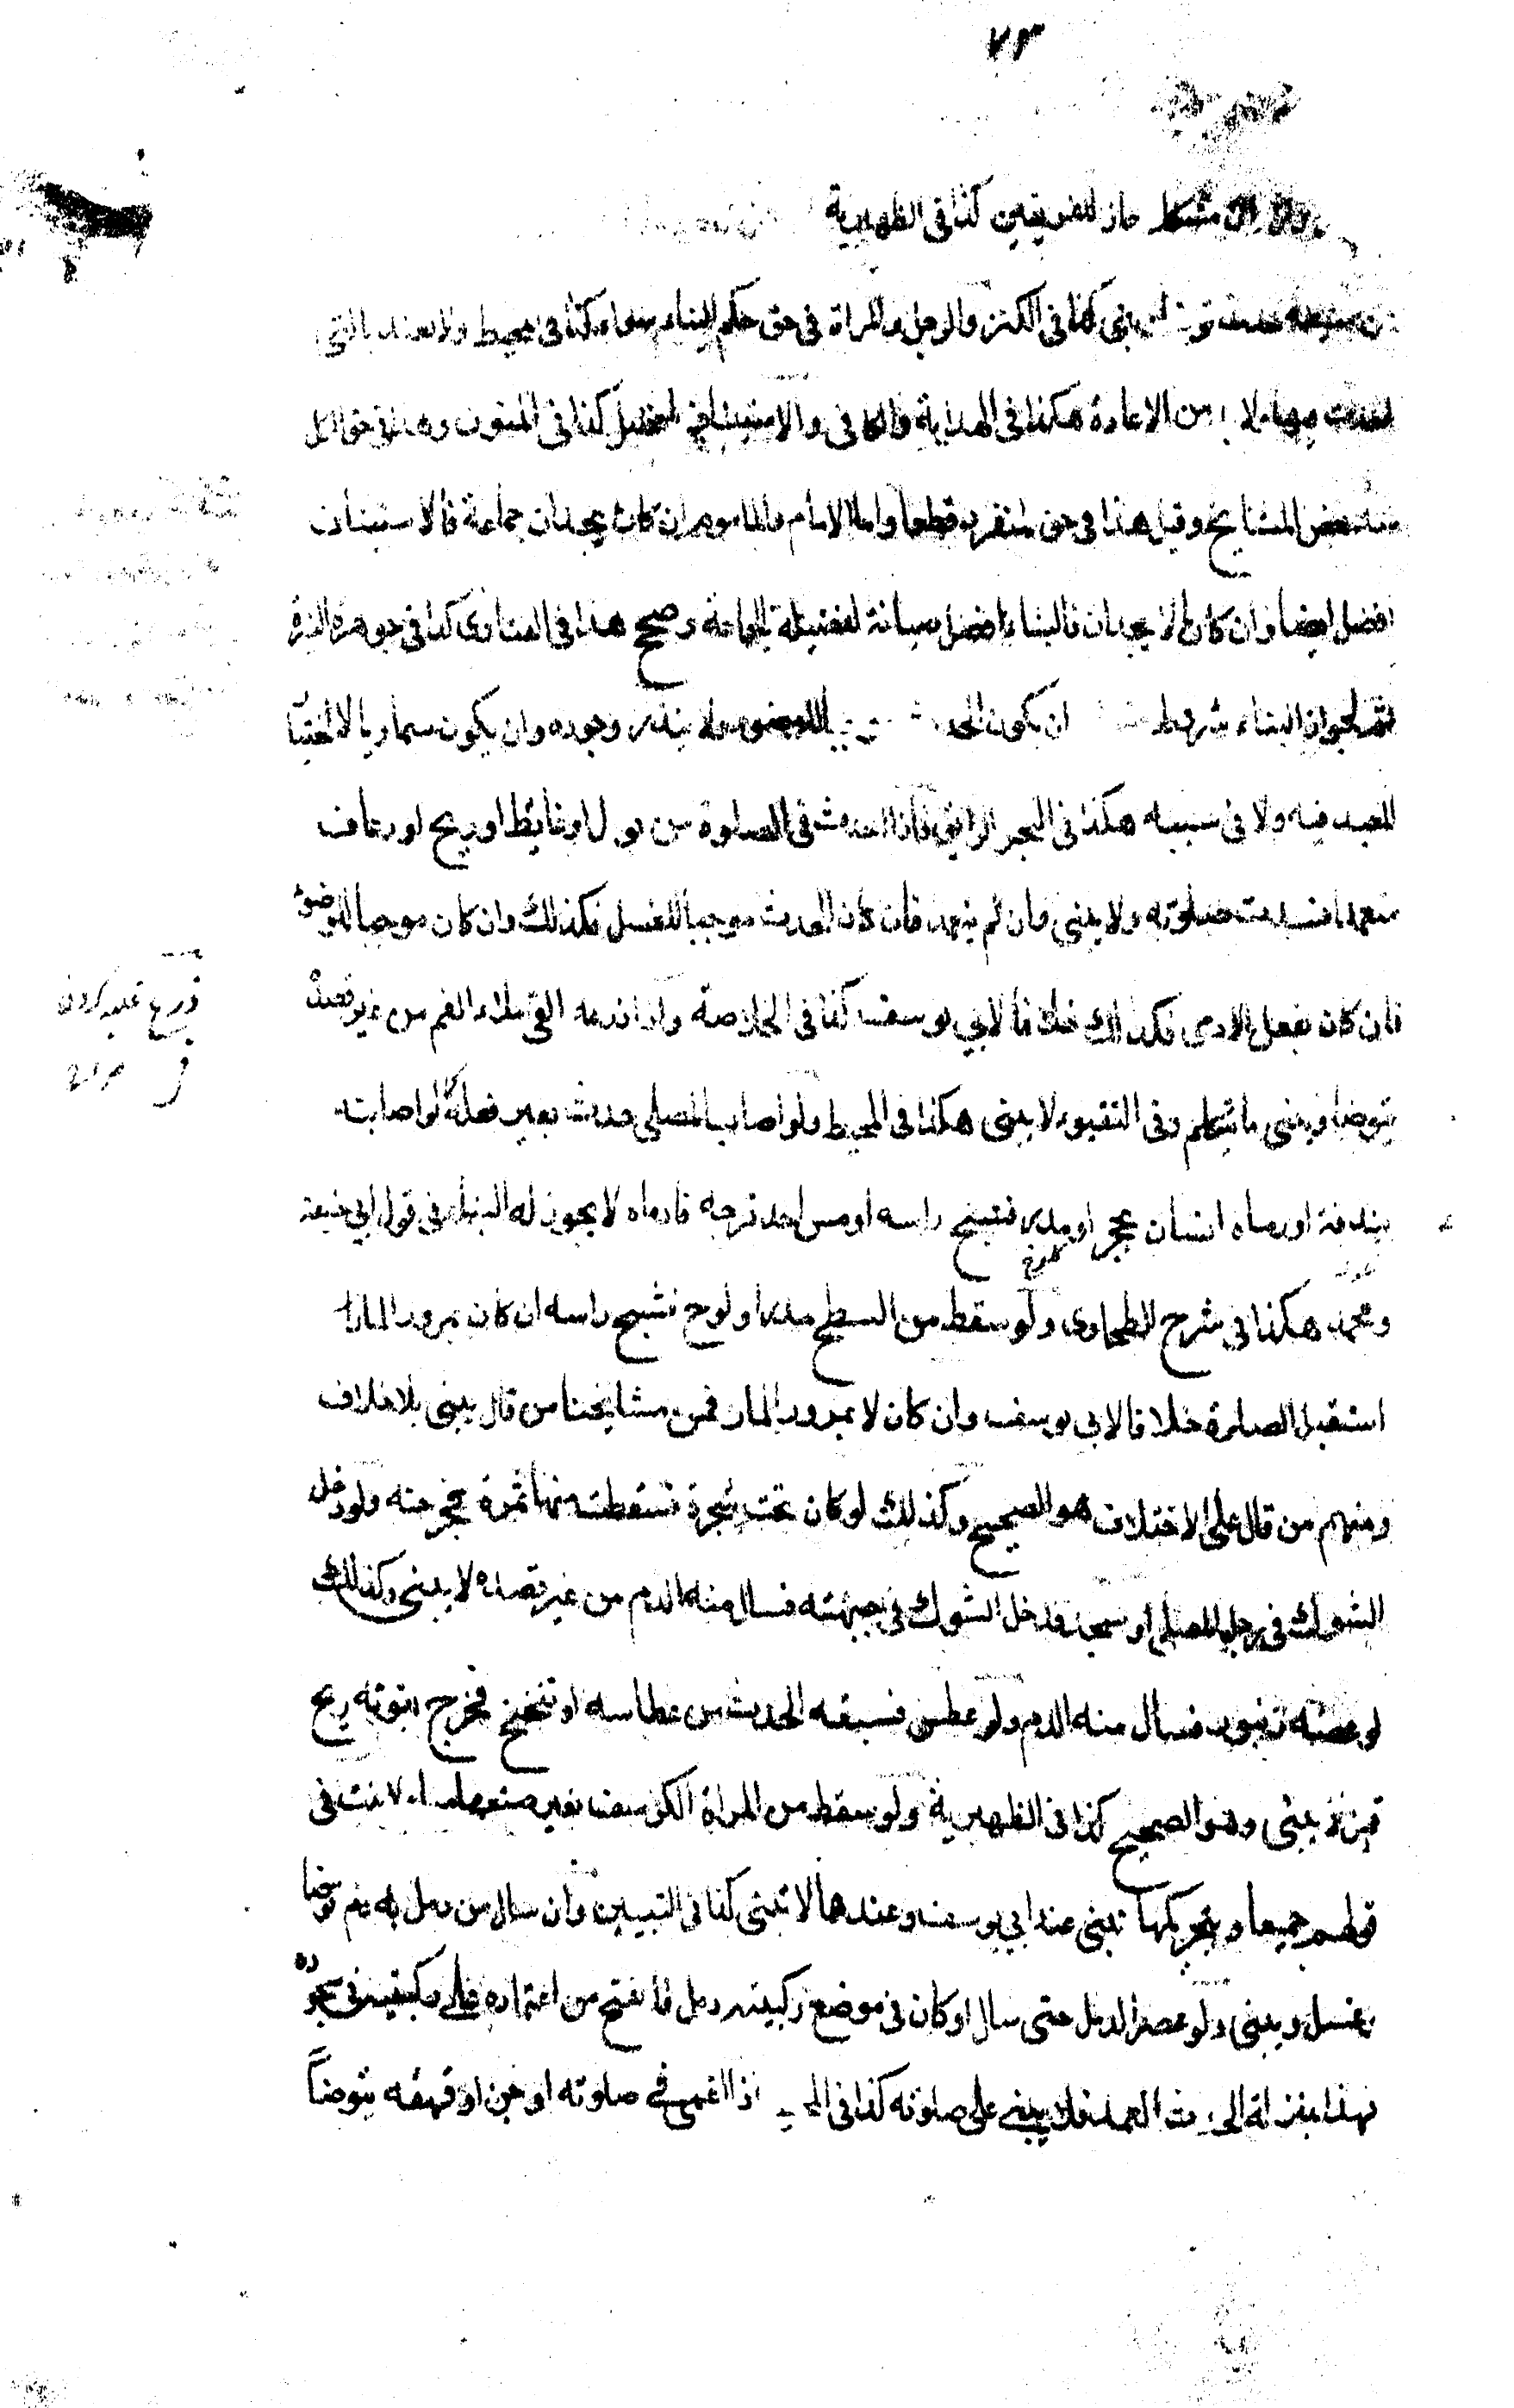 ٧٣
مشكل جاز للفريقين كذا في الظهيرية
من سبقه حدث توضأ وبنى كذا في الكنز والرجل والمراة في حق حكم البناء سواء كذا في المحيط ولا يعتد بالتي
احدث فيها ولا بد من الاعادة هكذا في الهداية والكافي والاستيناف افضل كذا في المتون وهذا في حق الكل
عند بعض المشايخ وقيل هذا في حق المنفرد قطعا واما الامام والماموم ان كانا يجدان جماعة فالاستيناف
افضل ايضا وان كانا لا يجدان فالبناء افضل صيانة لفضيلة الجماعة وصحح هذا في الفتاوى كذا في جوهرة النيرة
ثم لجواز البناء شروط ان يكون الحدث موجبا للوضوء ولا يندر وجوده وان يكون سماويا لا اختيار
للعبد فيه ولا في سببه هكذا في البحر الرايق فاذا احدث في الصلوة من بول او غايط او ريح او رعاف
متعمدا فسدت صلوته ولا يبني وان لم يتعمد فان كان الحدث موجبا للغسل فكذلك وان كان موجبا للوضوء
فان كان بفعل الادمي فكذلك خلافا لابي يوسف كذا في الخلاصة ولو ذرعه القئ ملاء الفم من غير قصده
يتوضا ويبني ما لم يتكلم وفي التقيؤ لا يبني هكذا في المحيط ولو اصاب المصلي حدث بغير فعله لو اصابته
بندقة او رماه انسان بحجر او مدر فشج راسه او مس احد قرحه فادماه لا يجوز له البناء في قول ابي حنيفة
ومحمد هكذا في شرح الطحاوي ولو سقط من السطح مدر او لوح فشج راسه ان كان بمرور المار
استقبل الصلوة خلافا لابي يوسف وان كان لا بمرور المار فمن مشايخنا من قال يبني بلا خلاف
ومنهم من قال على الاختلاف هو الصحيح وكذلك لو كان تحت شجرة فسقطت منها ثمرة فجرحته ولو دخل
الشوك في رجل المصلي او سجد فدخل الشوك في جبهته فسال منه الدم من غير قصده لا يبني وكذلك
لو عضه زنبور فسال منه الدم ولو عطس فسبقه الحدث من عطاسه او تنحنح فخرج بقوته ريح
قيل لا يبني وهو الصحيح كذا في الظهيرية ولو سقط من المراة الكرسف بغير صنعها مبلولا بنت في
قولهم جميعا وبتحريكها تبني عند ابي يوسف وعندهما لا تبني كذا في التبيين وان سال من دمل به دم توضا
وغسل ويبني ولو عصر الدمل حتى سال او كان في موضع ركبتيه دمل فانفتح من اعتماده على ركبتيه في سجوده
فهذا بمنزلة الحدث العمد فلا يبني على صلوته كذا في اذا اغمي في صلوته او جن او قهقه يتوضا